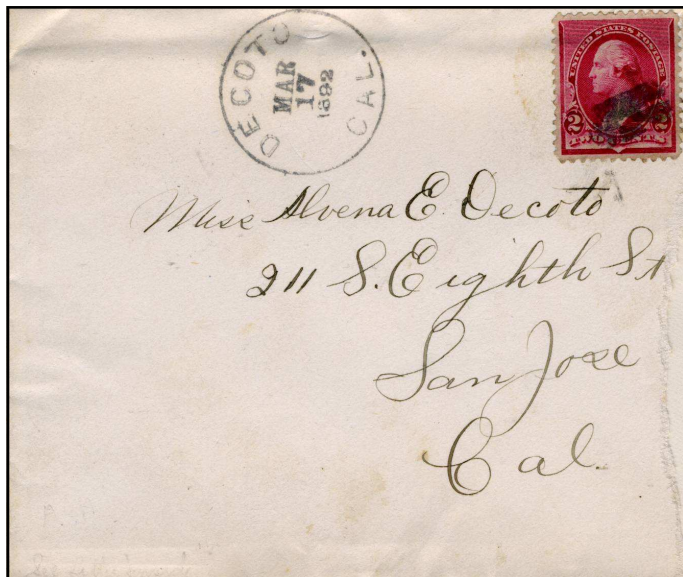 DECOTO CAL.
MAR
17
1892
UNITED STATES POSTAGE
2 2
Miss Alvena E. Decoto
211 S. Eighth St
San Jose
Cal.